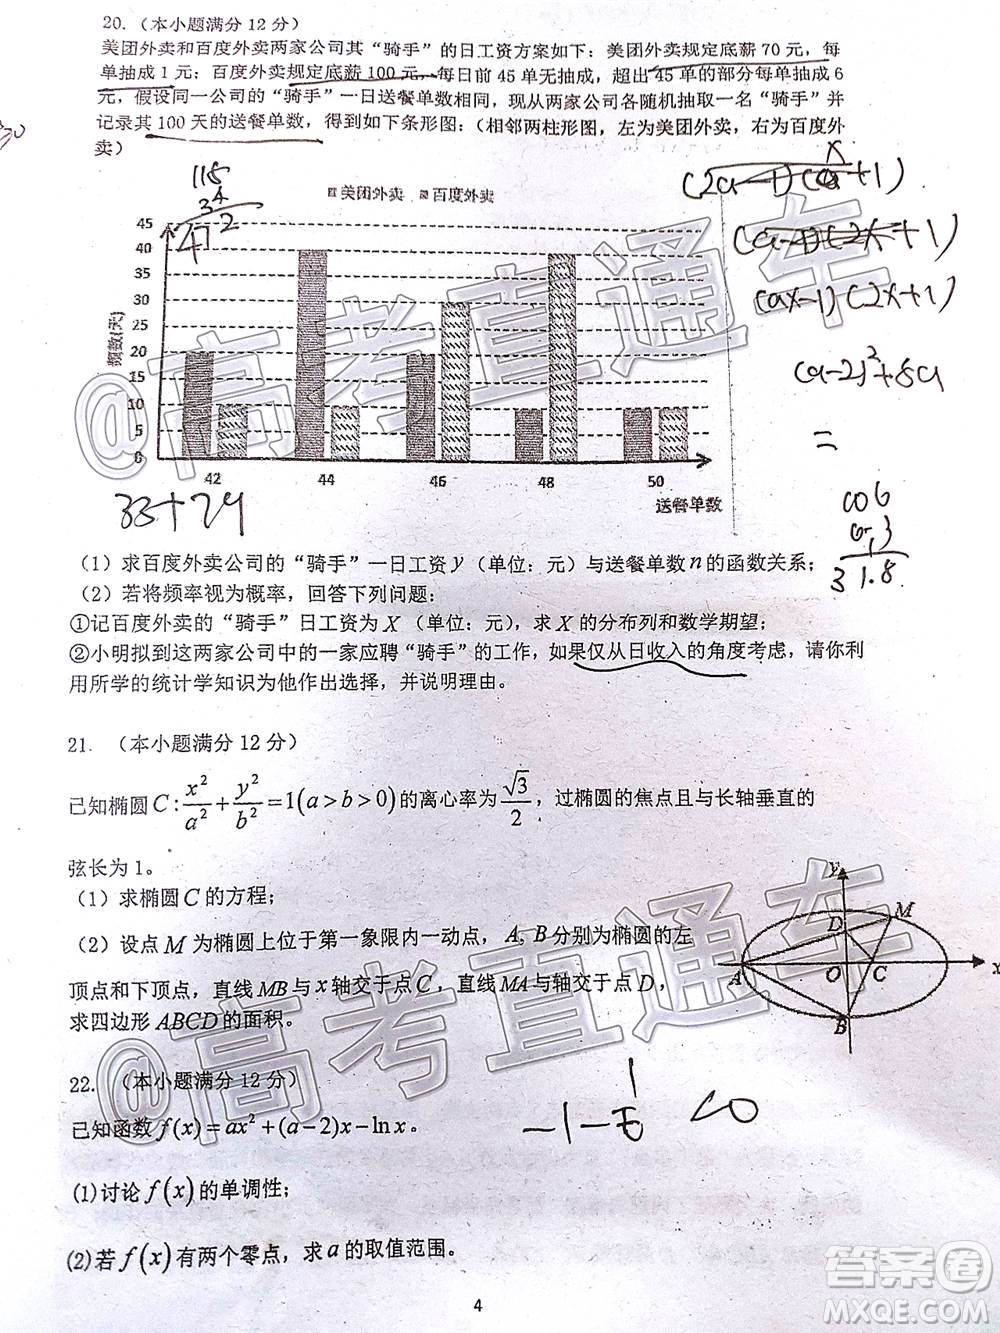 20.（本小题满分12分）
美团外卖和百度外卖两家公司其“骑手”的日工资方案如下：美团外卖规定底薪70元，每
单抽成1元；百度外卖规定底薪100元，每日前45单无抽成，超出45单的部分每单抽成6
元，假设同一公司的“骑手”一日送餐单数相同，现从两家公司各随机抽取一名“骑手”并
记录其100天的送餐单数，得到如下条形图：（相邻两柱形图，左为美团外卖，右为百度外
卖）
115
34
472
美团外卖 百度外卖
45
40
35
30
25
20
15
10
5
0
频数(天)
42 44 46 48 50
送餐单数
33+24
(2a-1)(x+1)
(a-1)(2x+1)
(ax-1)(2x+1)
(a-2)²+8a
=
106
0.3
31.8
（1）求百度外卖公司的“骑手”一日工资y（单位：元）与送餐单数n的函数关系；
（2）若将频率视为概率，回答下列问题：
①记百度外卖的“骑手”日工资为X（单位：元），求X的分布列和数学期望；
②小明拟到这两家公司中的一家应聘“骑手”的工作，如果仅从日收入的角度考虑，请你利
用所学的统计学知识为他作出选择，并说明理由。
21.（本小题满分12分）
已知椭圆C:x²/a²+y²/b²=1(a>b>0)的离心率为√3/2，过椭圆的焦点且与长轴垂直的
弦长为1。
（1）求椭圆C的方程；
（2）设点M为椭圆上位于第一象限内一动点，A，B分别为椭圆的左
顶点和下顶点，直线MB与x轴交于点C，直线MA与轴交于点D，
求四边形ABCD的面积。
y
D M
A O C x
B
22.（本小题满分12分）
已知函数f(x)=ax²+(a-2)x-lnx。
(1)讨论f(x)的单调性；
(2)若f(x)有两个零点，求a的取值范围。
4
@高考直通车
@高考直通车
答案圈
MXQE.COM